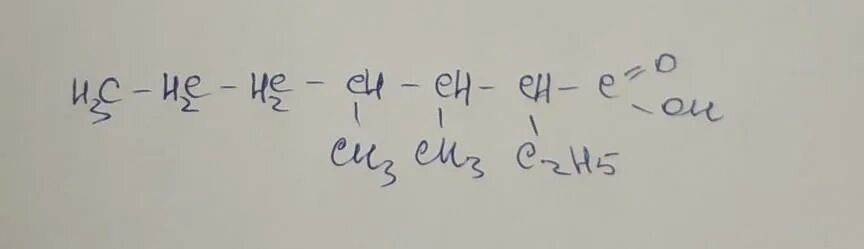 H₃C – H₂C – H₂C – CH – CH – CH – C =O
CH₃ CH₃ C₂H5 – OH